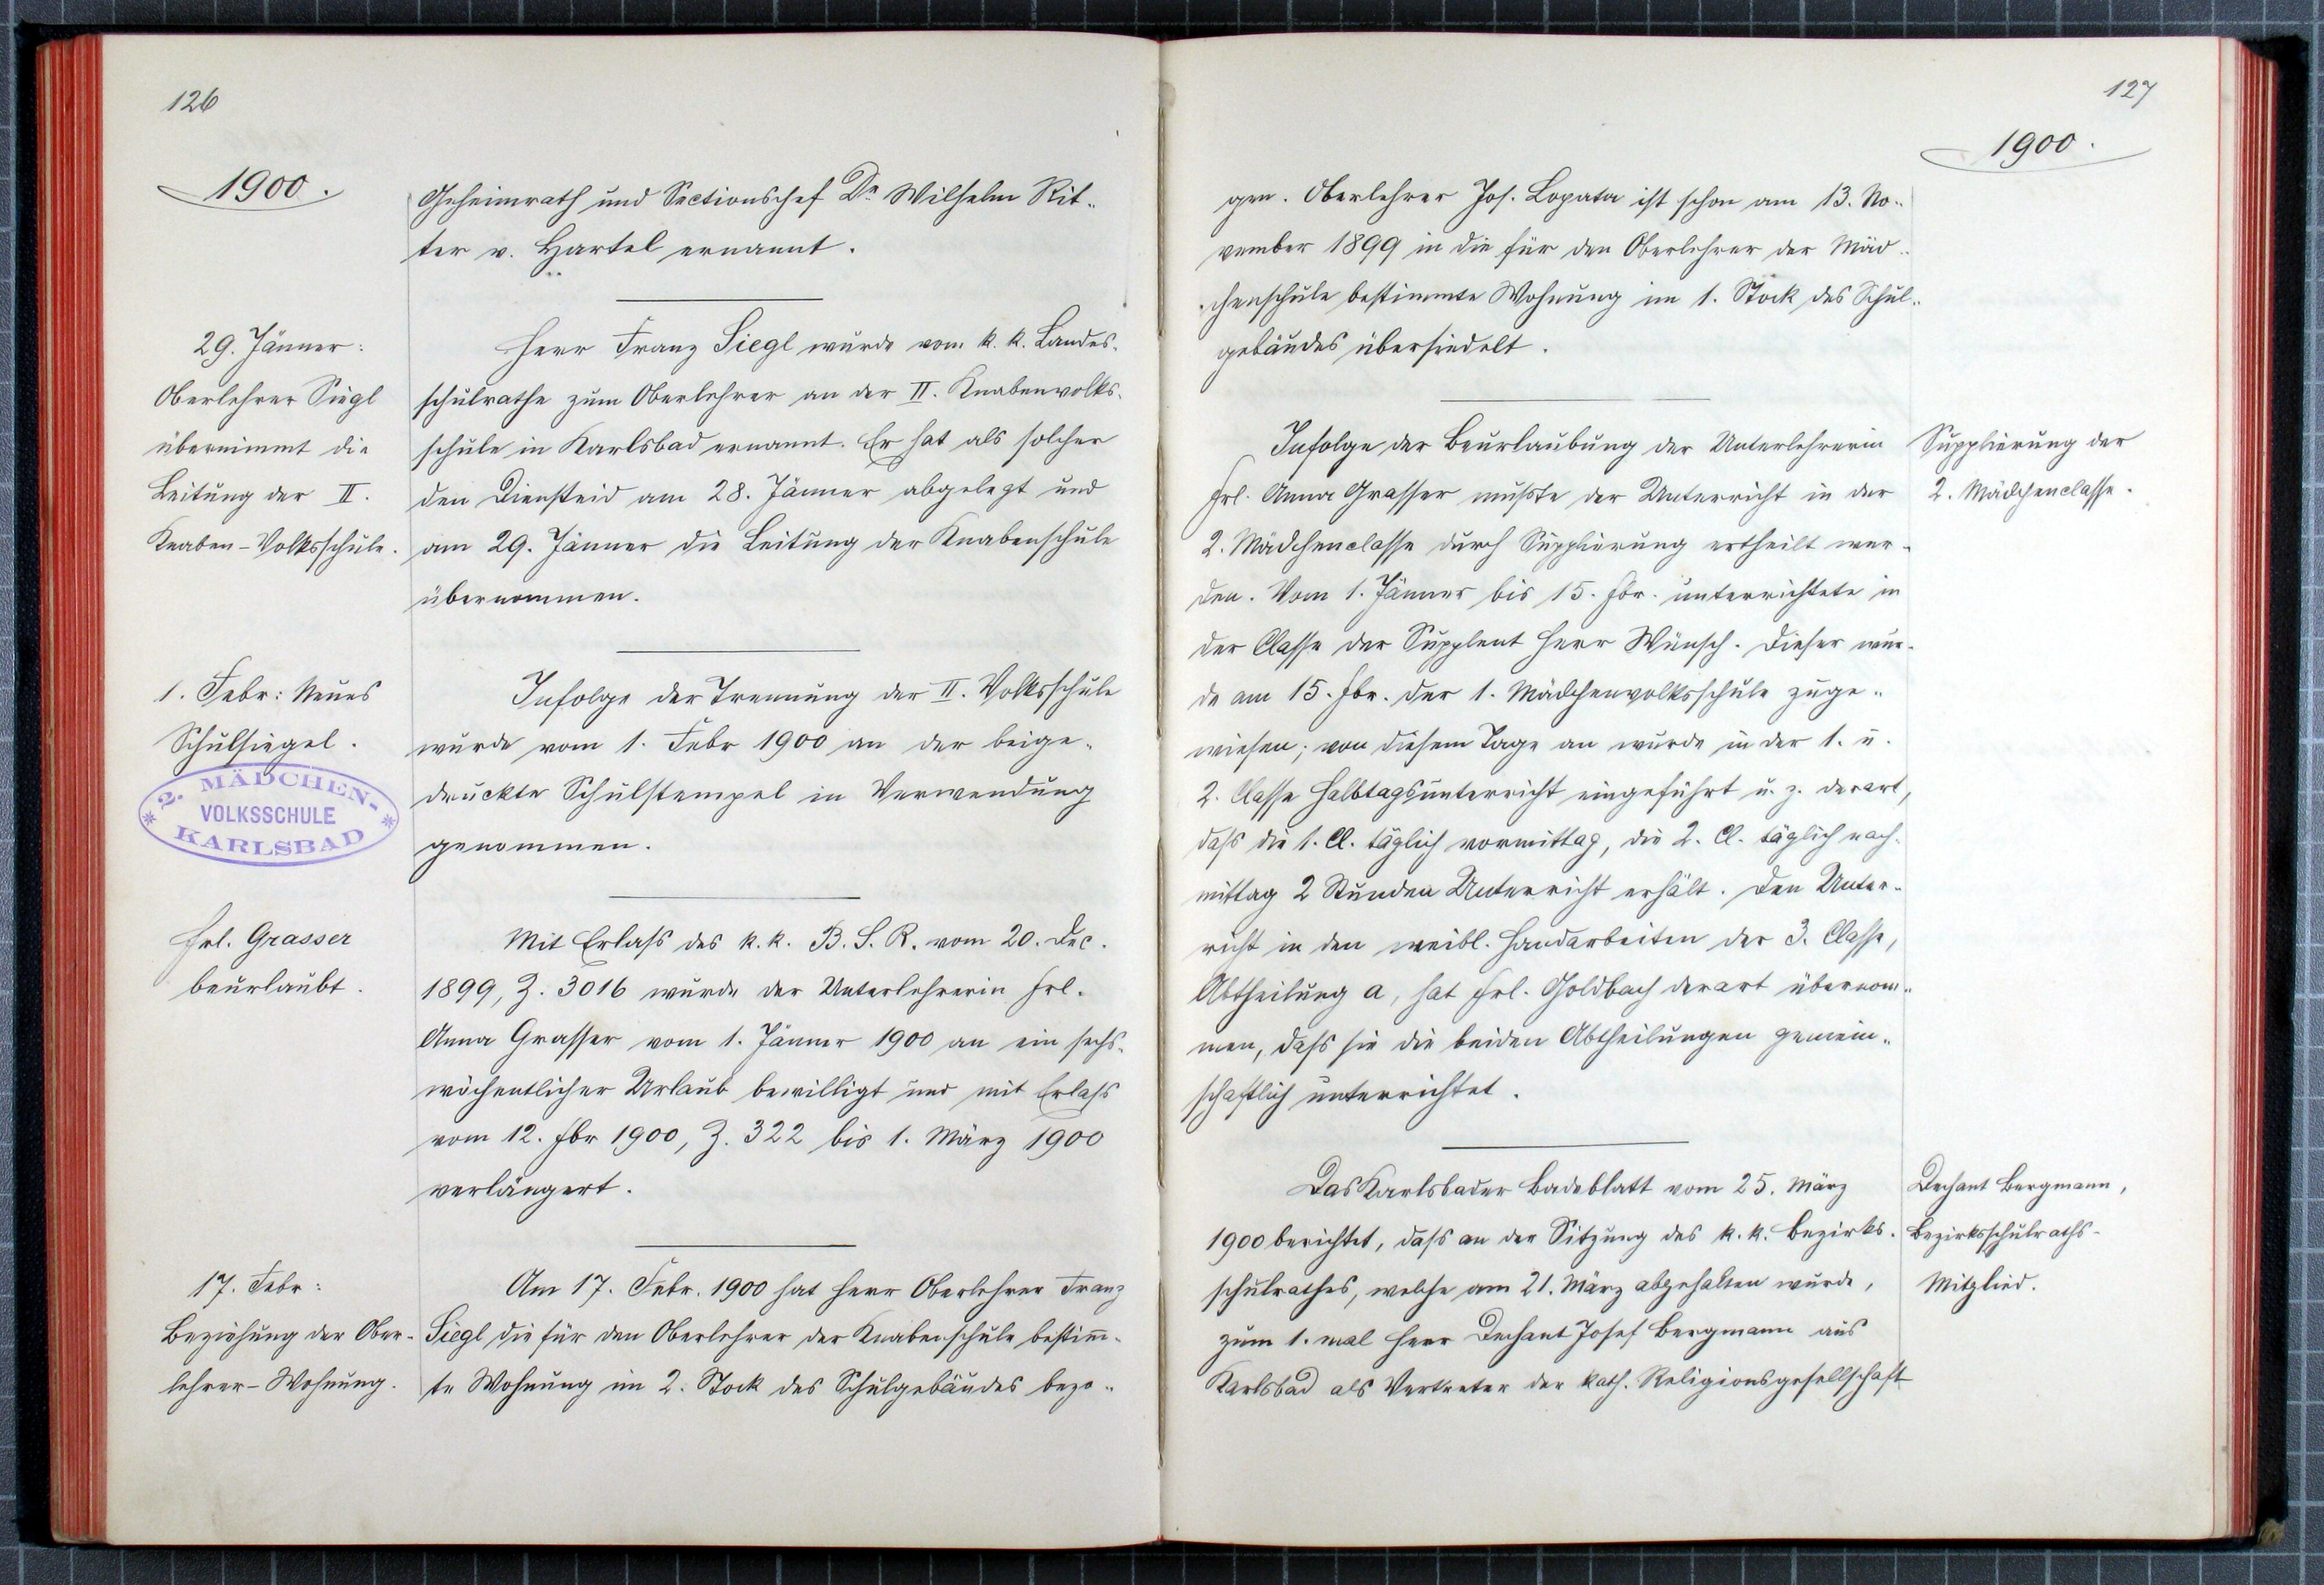 126
1900.
Geheimrath und Sectionschef Dr Wilhelm Rit-
ter v. Hartel ernannt.
29. Jänner:
Oberlehrer Siegl
übernimmt die
Leitung der II.
Knaben-Volksschule.
Herr Franz Siegl wurde vom k. k. Landes-
schulrathe zum Oberlehrer an der II. Knabenvolks-
schule in Karlsbad ernannt. Er hat als solcher
den Diensteid am 28. Jänner abgelegt und
am 29. Jänner die Leitung der Knabenschule
übernommen.
1. Febr: Neues
Schulsiegel.
2. MÄDCHEN-
VOLKSSCHULE
KARLSBAD
Infolge der Trennung der II. Volksschule
wurde vom 1. Febr 1900 an der beige-
druckte Schulstempel in Verwendung
genommen.
Frl. Grasser
beurlaubt.
Mit Erlaß des k. k. B. S. R. vom 20. Dec.
1899, Z. 3016 wurde der Unterlehrerin Frl.
Anna Grasser vom 1. Jänner 1900 an ein sechs-
wöchentlicher Urlaub bewilligt und mit Erlaß
vom 12. Fbr 1900, Z. 322 bis 1. März 1900
verlängert.
17. Febr:
Beziehung der Ober-
lehrer-Wohnung.
Am 17. Febr. 1900 hat Herr Oberlehrer Franz
Siegl die für den Oberlehrer der Knabenschule bestim̄-
te Wohnung im 2. Stock des Schulgebäudes bezo-
127
1900.
gen. Oberlehrer Jos. Lopata ist schon am 13. No-
vember 1899 in die für den Oberlehrer der Mäd-
chenschule bestimmte Wohnung im 1. Stock des Schul-
gebäudes übersiedelt.
Infolge der Beurlaubung der Unterlehrerin
Frl. Anna Grasser mußte der Unterricht in der
2. Mädchenclasse durch Supplierung ertheilt wer-
den. Vom 1. Jänner bis 15. Fbr. unterrichtete in
der Classe der Supplent Herr Wünsch. Dieser wur-
de am 15. Fbr. der 1. Mädchenvolksschule zuge-
wiesen; von diesem Tage an wurde in der 1. u.
2. Classe Halbtagsunterricht eingeführt u. z. derart,
daß die 1. Cl. täglich vormittag, die 2. Cl. täglich nach-
mittag 2 Stunden Unterricht erhält. Den Unter-
richt in den weibl. Handarbeiten der 3. Classe,
Abtheilung a, hat Frl. Goldbach derart übernom-
men, daß sie die beiden Abtheilungen gemein-
schaftlich unterrichtet.
Supplierung der
2. Mädchenclasse.
Das Karlsbader Badeblatt vom 25. März
1900 berichtet, daß an der Sitzung des k. k. Bezirks-
schulrathes, welche am 21. März abgehalten wurde,
zum 1. mal Herr Dechant Josef Bergmann aus
Karlsbad als Vertreter der kath. Religionsgesellschaft
Dechant Bergmann,
Bezirksschulraths-
Mitglied.